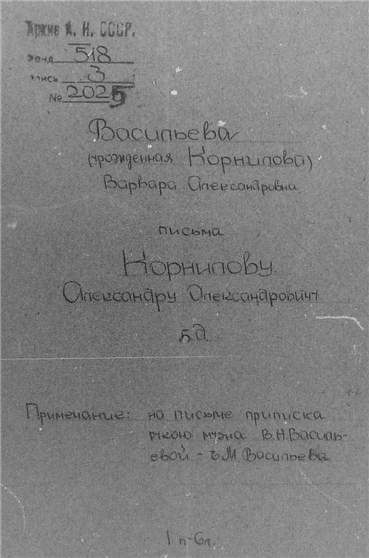 Архив А. Н. СССР.
Фонд 518
опись 3
№ 2025
Васильева
(урожденная Корнилова)
Варвара Александровна
письма
Корнилову
Александру Александровичу
б.д.
Примечание: на письме приписка
рукою мужа В.А. Василь-
евой - М. Васильева
1 п-6л.